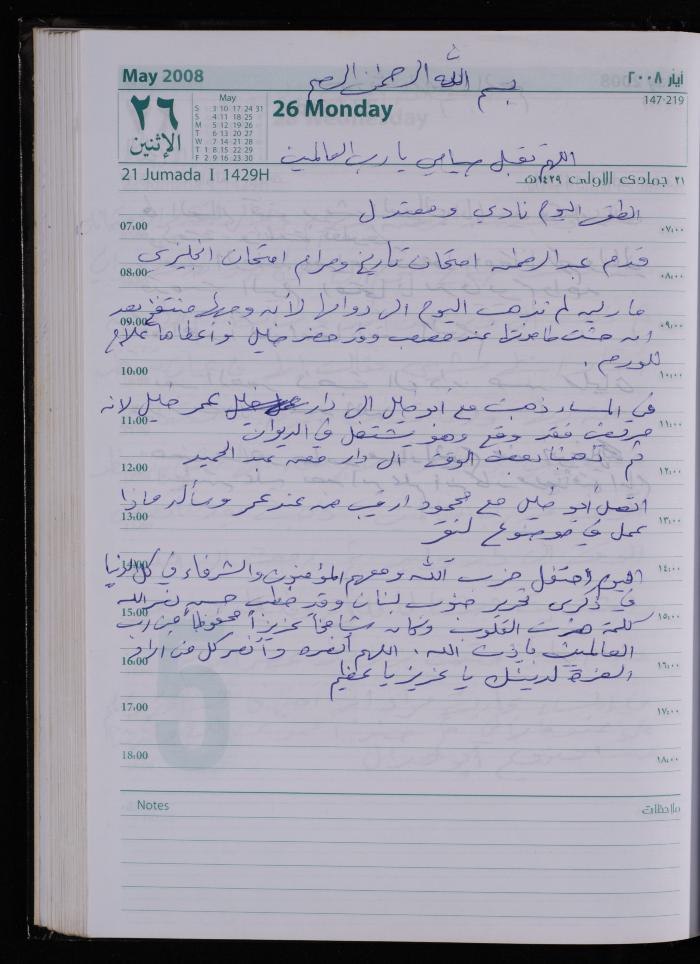 بسم الله الرحمن الرحيم
May 2008
أيار ٢٠٠٨
147-219
٢٦
الإثنين
May
S 3 10 17 24 31
S 4 11 18 25
M 5 12 19 26
T 6 13 20 27
W 7 14 21 28
T 1 8 15 22 29
F 2 9 16 23 30
26 Monday
اللهم تقبل صيامي يا رب العالمين
21 Jumada I 1429H
٢١ جمادى الاولى ١٤٢٩هـ
الطقس اليوم نادي ومعتدل
07:00 ٠٧:٠٠
قدم عبد الرحمن امتحان تاريخ ومرام امتحان انجليزي
08:00 ٠٨:٠٠
مارليه لم تذهب اليوم الى دوامها لأنه وجهها منتفخ بعد
09:00 ٠٩:٠٠
ان حشت طاحونتها عند مصعب وقد حضر خليل واعطاها علاج
للورم .
10:00 ١٠:٠٠
في المساء ذهبت مع ابو خليل الى دار عمر خليل لانه
11:00 ١١:٠٠
مريض فقد وقع وهو يشتغل في الديوان
ثم ذهبنا بعض الوقت الى دار عبد الحميد
12:00 ١٢:٠٠
اتصل أبو خليل مع محمود من عند عمر وسأله ماذا
13:00 ١٣:٠٠
عمل في موضوع
14:00 ١٤:٠٠
اليوم احتفل حزب الله ومعهم المؤمنون والشرفاء في كل الدنيا
في ذكرى تحرير جنوب لبنان وقد خطب حسن نصر الله
15:00 ١٥:٠٠
كلمة هزت القلوب وكان شامخاً عزيزاً محفوظاً من رب
العالمين بإذن الله . اللهم أنصره وأنصر كل من أراد
16:00 ١٦:٠٠
العزة لدينك يا عزيز يا عظيم
17:00 ١٧:٠٠
18:00 ١٨:٠٠
Notes
ملاحظات